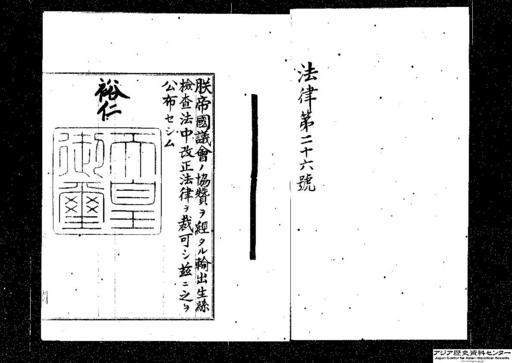 法律第二十六號
朕帝國議會ノ協贊ヲ經タル輸出生絲
檢查法中改正法律ヲ裁可シ茲ニ之ヲ
公布セシム
裕仁
天皇
御璽
アジア歴史資料センター
Japan Center for Asian Historical Records